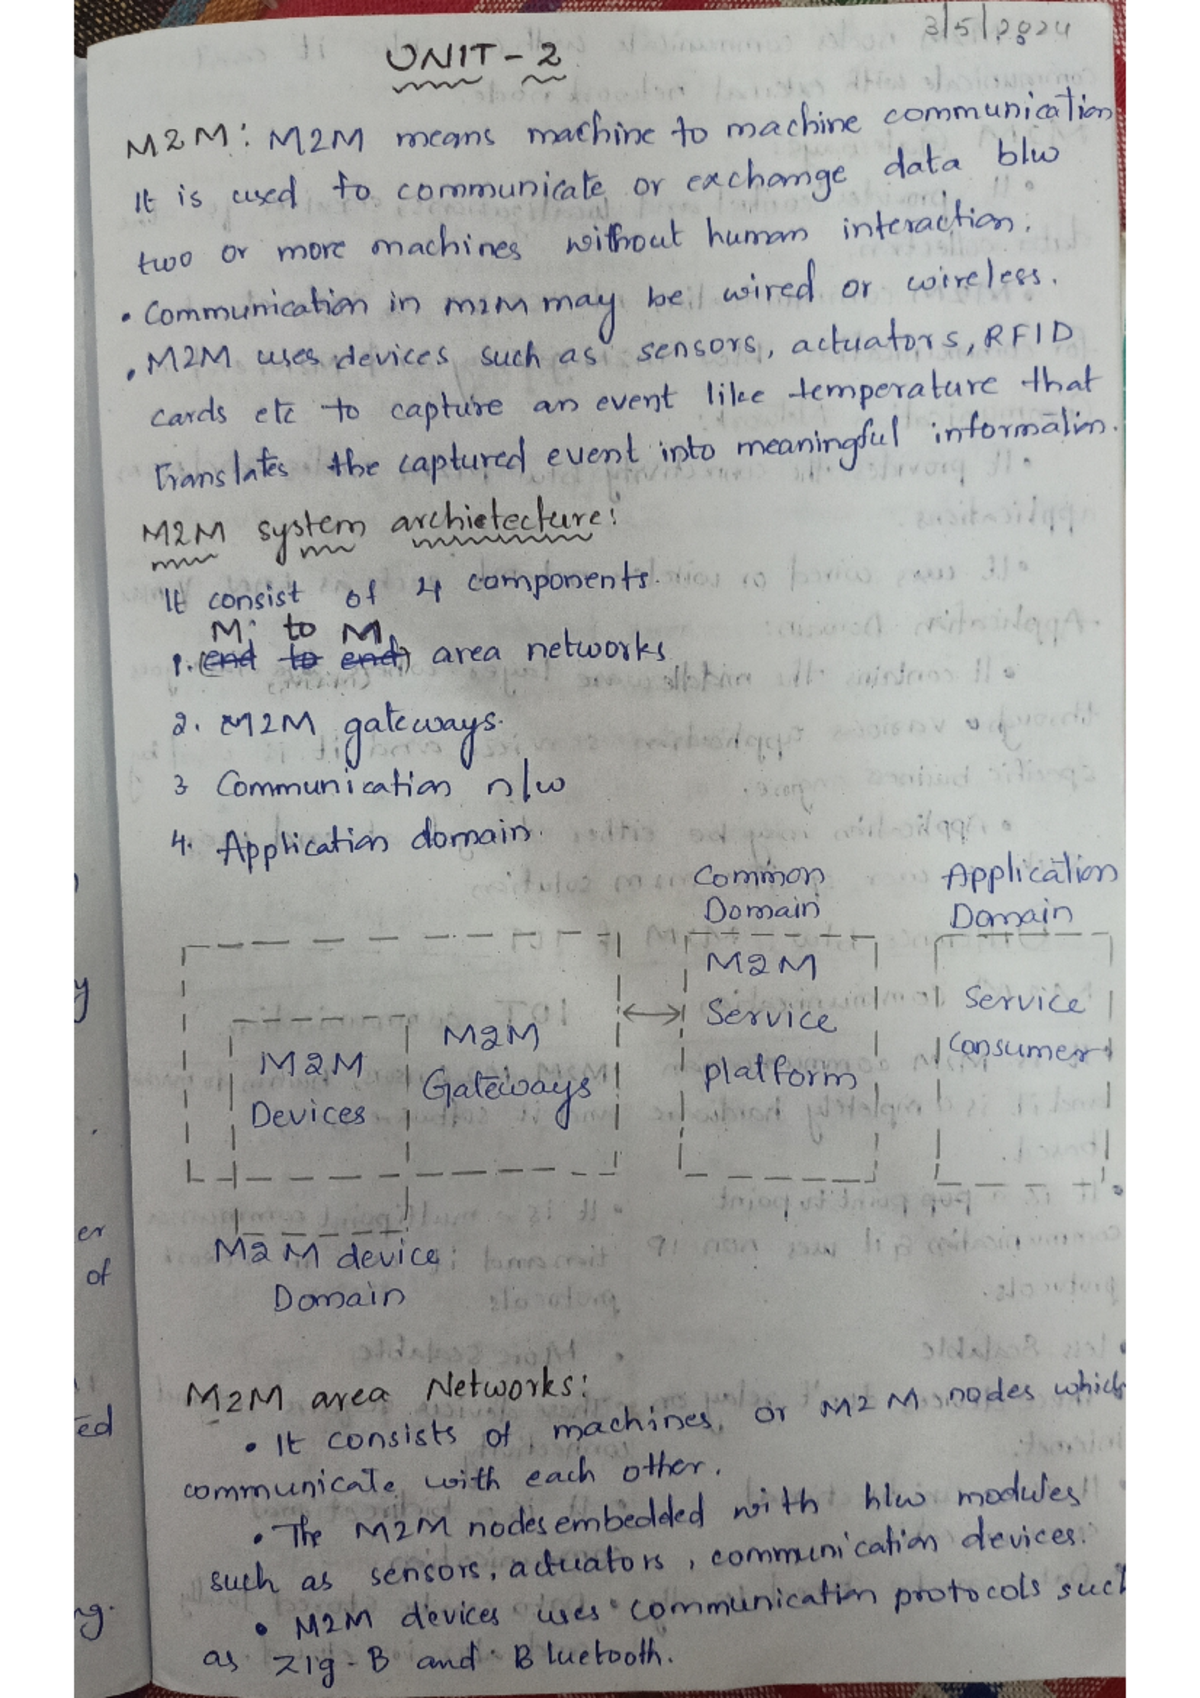 3/5/2024
UNIT-2
M2M: M2M means machine to machine communication
It is used to communicate or exchange data b/w
two or more machines without human interaction.
• Communication in M2M may be wired or wireless.
• M2M uses devices such as sensors, actuators, RFID
cards etc to capture an event like temperature that
translates the captured event into meaningful informatin.
M2M system archietecture:
It consist of 4 components.
M to M
1. (end to end) area networks
2. M2M gateways.
3 Communication n/w
4. Application domain.
Common Domain
Application Domain
M2M Devices
M2M Gateways
M2M Service platform
Service Consumer
M2M device Domain
M2M area Networks:
• It consists of machines, or M2M nodes which
communicate with each other.
• The M2M nodes embedded with h/w modules
such as sensors, actuators, communication devices.
• M2M devices uses communication protocols such
as Zig-B and Bluetooth.
y
er
of
ed
ng.